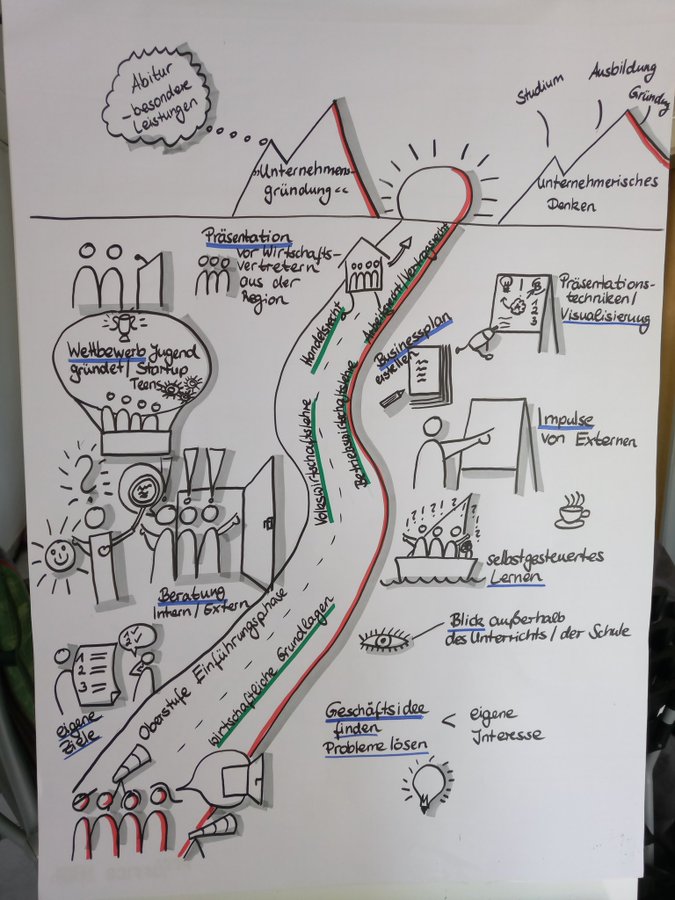 Abitur
- besondere
Leistungen
"Unternehmens-
gründung"
Studium
Ausbildung
Gründung
Unternehmerisches
Denken
Präsentation
vor Wirtschafts-
vertretern
aus der
Region
Wettbewerb Jugend
gründet/Startup
Teens
?
! !
Beratung
Intern/Extern
1
2
3
eigene
Ziele
Handelsrecht
Arbeitsrecht/Vertragsrecht
Volkswirtschaftslehre
Betriebswirtschaftslehre
Oberstufe Einführungsphase
wirtschaftliche Grundlagen
Businessplan
erstellen
Präsentations-
techniken/
Visualisierung
1
2
3
Impulse
von Externen
selbstgesteuertes
Lernen
Blick außerhalb
des Unterrichts/der Schule
Geschäftsidee
finden
Probleme lösen
< eigene
Interesse